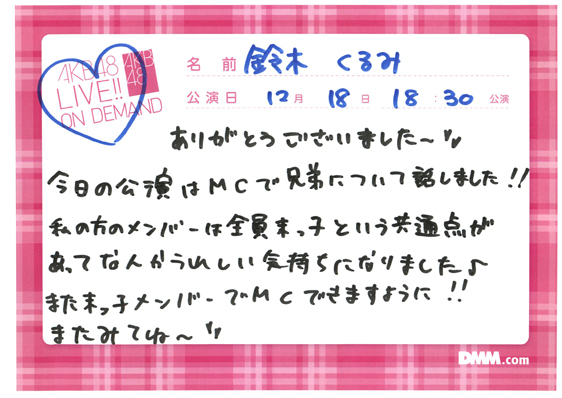 AKB48
LIVE!!
ON DEMAND
AKB
48
名前 鈴木 くるみ
公演日 12月 18日 18:30 公演
ありがとうございました〜
今日の公演はMCで兄弟について話しました!!
私の方のメンバーは全員末っ子という共通点が
あってなんかうれしい気持ちになりました♪
また末っ子メンバーでMCできますように!!
またみてね〜
DMM.com